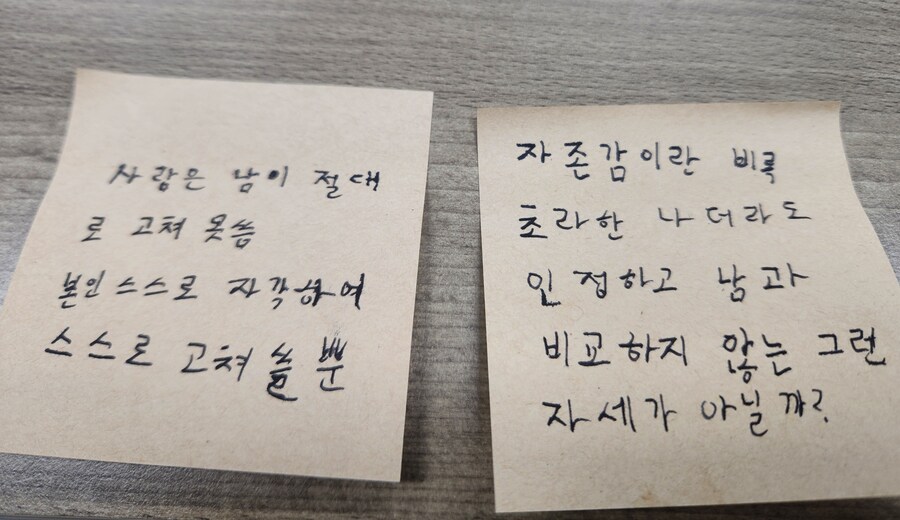 사랑은 남이 절대
로 고쳐 못씀
본인 스스로 자각하여
스스로 고쳐 쓸 뿐
자존감이란 비록
초라한 나더라도
인정하고 남과
비교하지 않는 그런
자세가 아닐까?